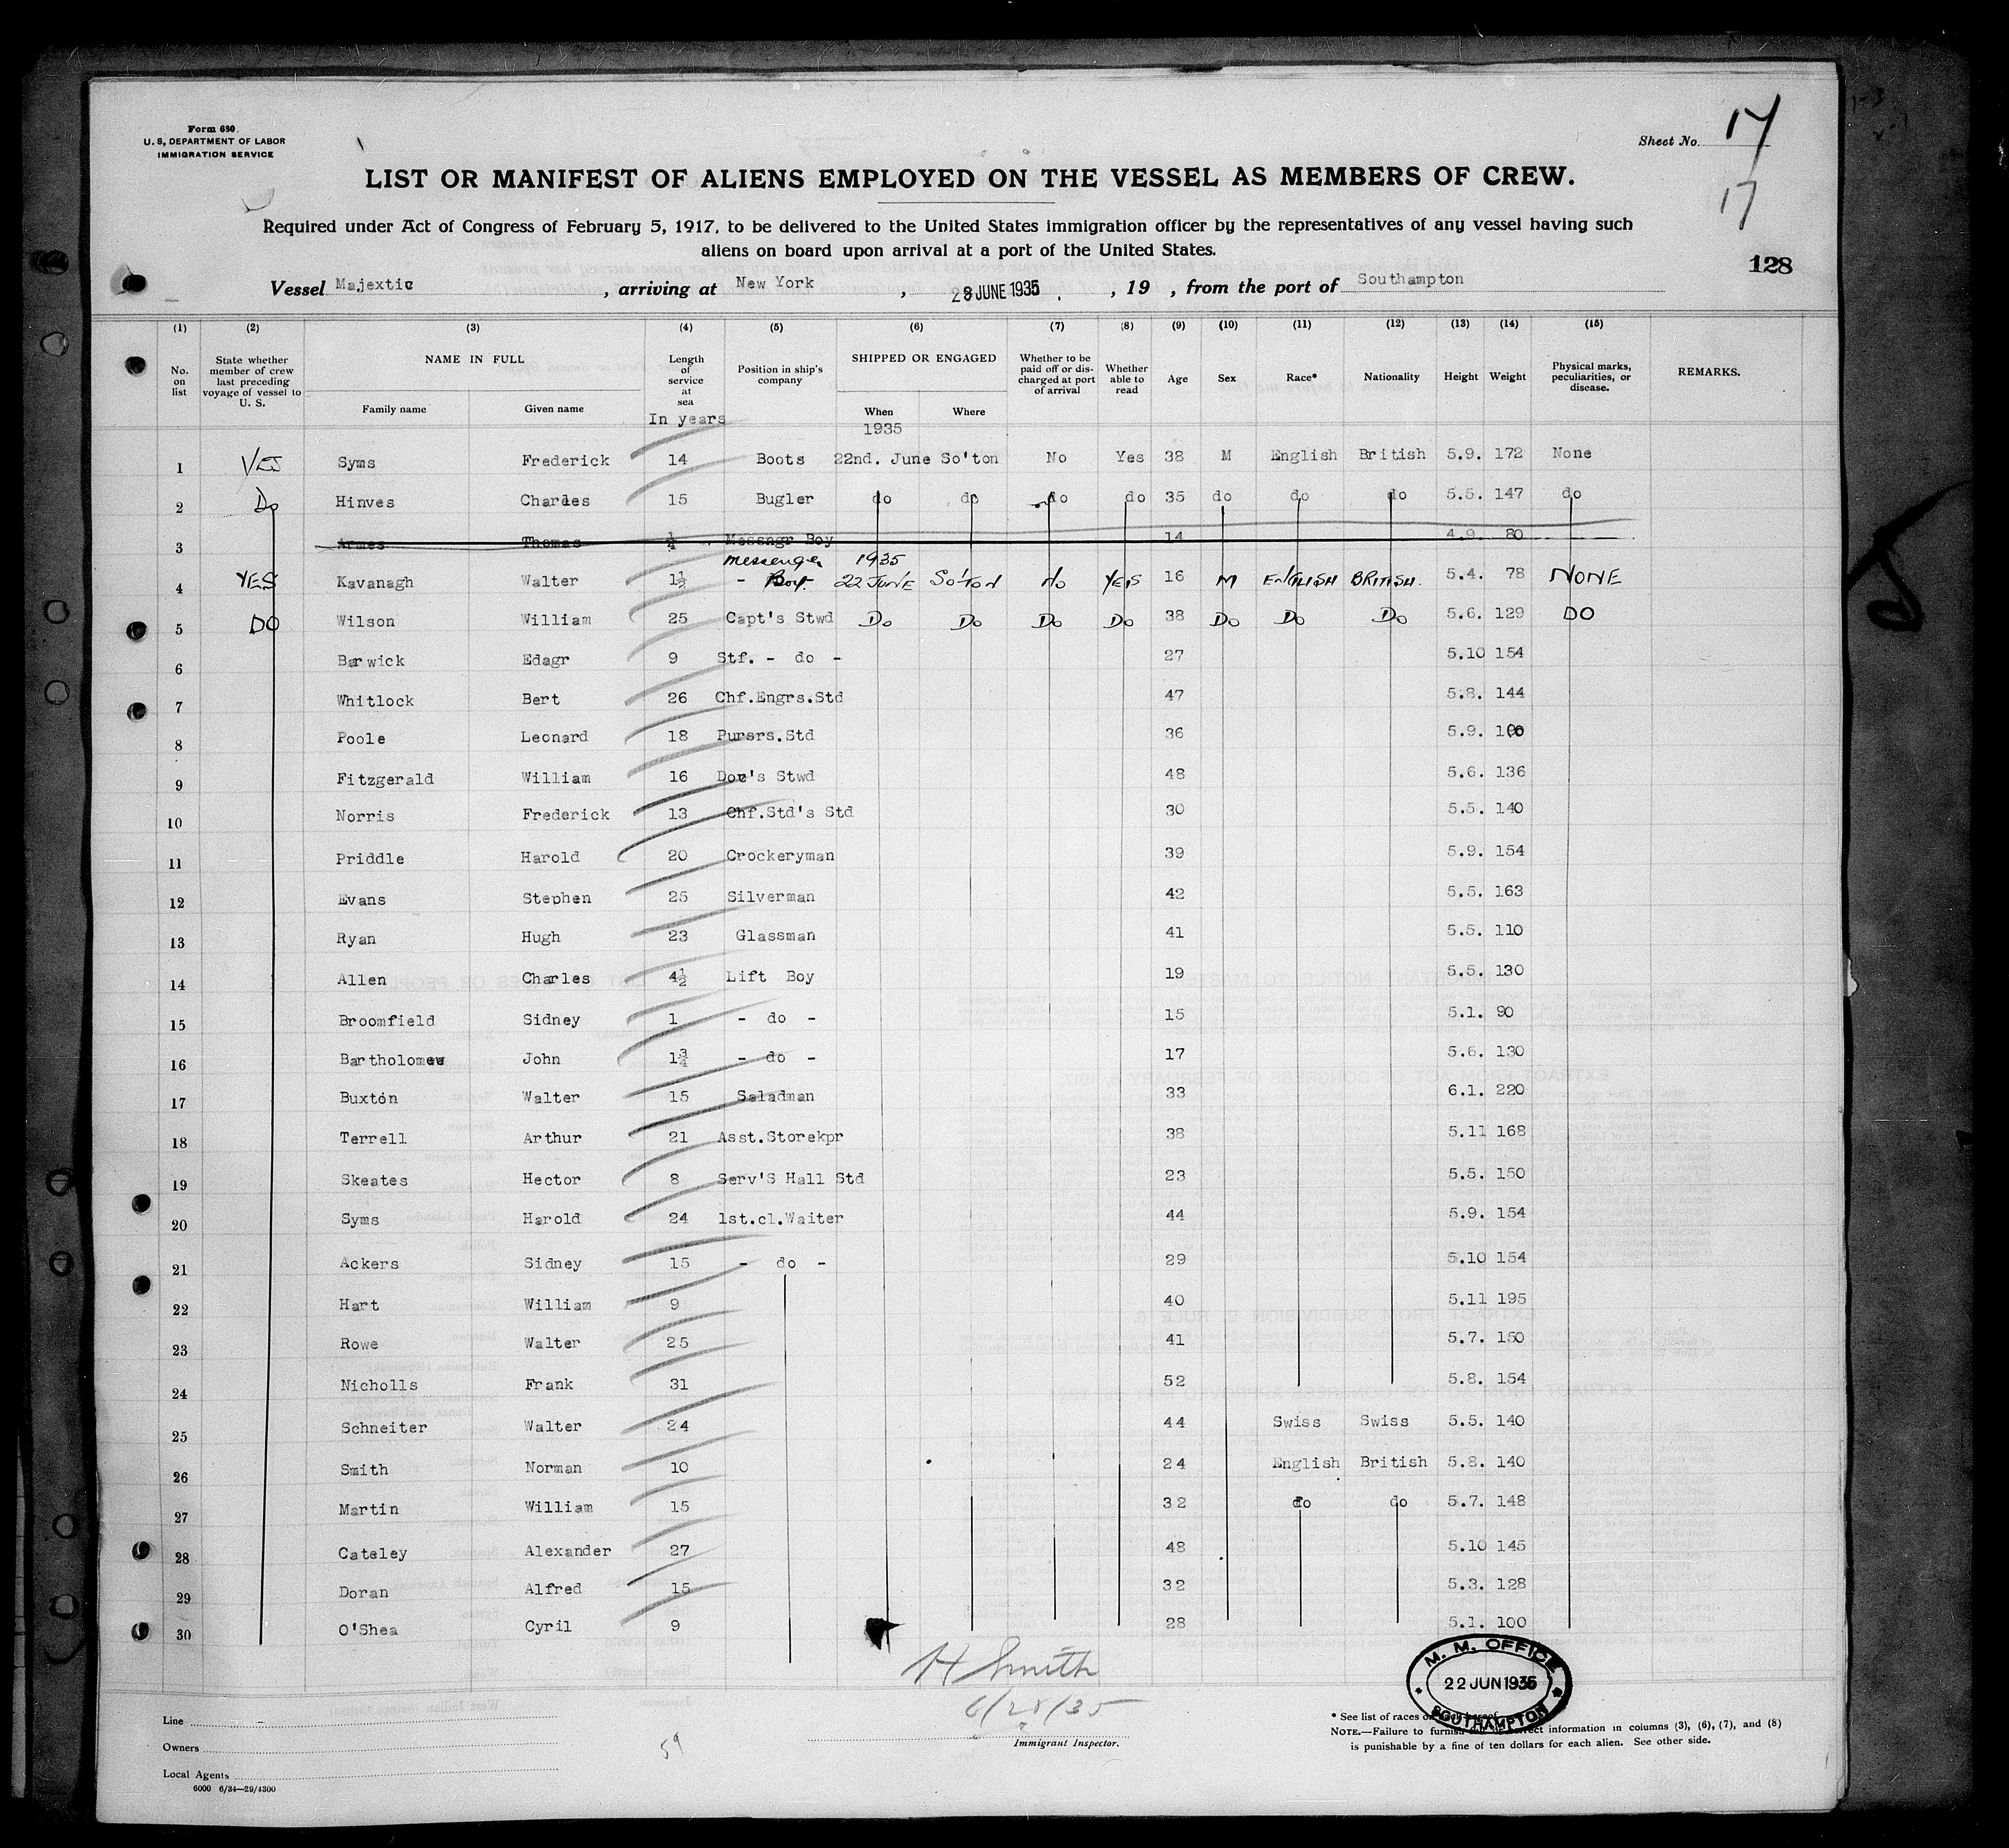 Form 680.
U. S, DEPARTMENT OF LABOR
IMMIGRATION SERVICE
Sheet No. 17
17
LIST OR MANIFEST OF ALIENS EMPLOYED ON THE VESSEL AS MEMBERS OF CREW.
Required under Act of Congress of February 5, 1917, to be delivered to the United States immigration officer by the representatives of any vessel having such
aliens on board upon arrival at a port of the United States.
128
Vessel Majextic , arriving at New York , 28 JUNE 1935 , 19 , from the port of Southampton
(1) (2) (3) (4) (5) (6) (7) (8) (9) (10) (11) (12) (13) (14) (15)
No. on list
State whether member of crew last preceding voyage of vessel to U. S.
NAME IN FULL
Family name Given name
Length of service at sea
In years
Position in ship's company
SHIPPED OR ENGAGED
When Where
1935
Whether to be paid off or discharged at port of arrival
Whether able to read
Age
Sex
Race*
Nationality
Height
Weight
Physical marks, peculiarities, or disease.
REMARKS.
1 YES Syms Frederick 14 Boots 22nd. June So'ton No Yes 38 M English British 5.9. 172 None
2 Do Hinves Charles 15 Bugler do do do do 35 do do do 5.5. 147 do
3 Armes Thomas 1/4 Messngr Boy 14 4.9. 80
messenger 1935
4 YES Kavanagh Walter 1½ - Boy- 22 JUNE So'ton No YES 16 M ENGLISH BRITISH. 5.4. 78 NONE
5 DO Wilson William 25 Capt's Stwd Do Do Do Do 38 Do Do Do 5.6. 129 DO
6 Barwick Edagr 9 Stf. - do - 27 5.10 154
7 Whitlock Bert 26 Chf.Engrs.Std 47 5.8. 144
8 Poole Leonard 18 Pursrs.Std 36 5.9.
9 Fitzgerald William 16 Doc's Stwd 48 5.6. 136
10 Norris Frederick 13 Chf.Std's Std 30 5.5. 140
11 Priddle Harold 20 Crockeryman 39 5.9. 154
12 Evans Stephen 25 Silverman 42 5.5. 163
13 Ryan Hugh 23 Glassman 41 5.5. 110
14 Allen Charles 4½ Lift Boy 19 5.5. 130
15 Broomfield Sidney 1 - do - 15 5.1. 90
16 Bartholomew John 1¾ - do - 17 5.6. 130
17 Buxton Walter 15 Saladman 33 6.1. 220
18 Terrell Arthur 21 Asst.Storekpr 38 5.11 168
19 Skeates Hector 8 Serv'S Hall Std 23 5.5. 150
20 Syms Harold 24 1st.cl.Waiter 44 5.9. 154
21 Ackers Sidney 15 - do - 29 5.10 154
22 Hart William 9 40 5.11 195
23 Rowe Walter 25 41 5.7. 150
24 Nicholls Frank 31 52 5.8. 154
25 Schneiter Walter 24 44 Swiss Swiss 5.5. 140
26 Smith Norman 10 24 English British 5.8. 140
27 Martin William 15 32 do do 5.7. 148
28 Cateley Alexander 27 48 5.10 145
29 Doran Alfred 15 32 5.3. 128
30 O'Shea Cyril 9 28 5.1. 100
H Smith
6/28/35
Immigrant Inspector.
M. M. OFFICE
22 JUN 1935
SOUTHAMPTON
Line
Owners
Local Agents
6000 6/34—29/4300
59
* See list of races on back hereof.
NOTE.—Failure to furnish full or correct information in columns (3), (6), (7), and (8)
is punishable by a fine of ten dollars for each alien. See other side.